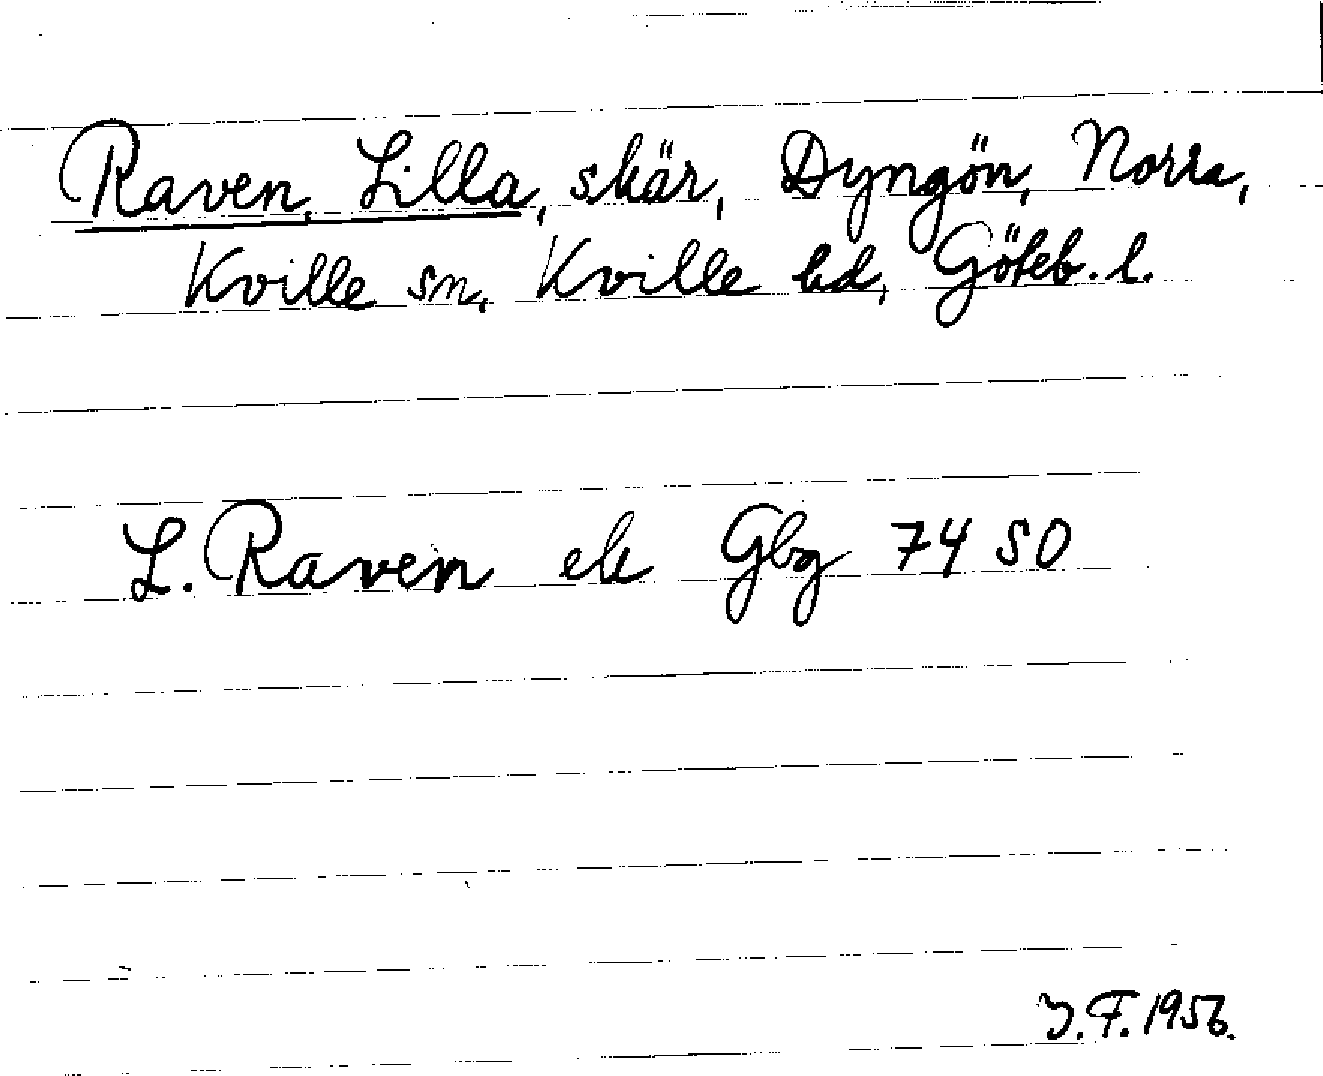 Raven, Lilla, skär, Dyngön, Norra,
Kville sn, Kville hd, Göteb. l.
L. Raven ek Gbg 74 SO
Y.F. 1956.